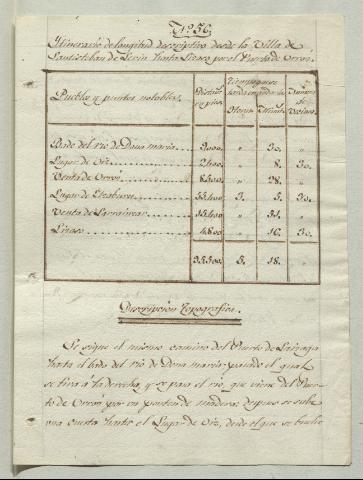 Nº 56.
Itinerario de longitud descriptivo desde la Villa de
Santisteban de Lerin hasta Lizaso por el Puerto de Orroz.
Pueblos y puntos notables. Distancia en pies. Tiempo que se tarda en andarla Horas Minutos Número de Vecinos.
Bado del rio de Dona maria 9000. " 30. "
Lugar de Oiz 2400. " 8. 30.
Venta de Orroz 8400. " 28. "
Lugar de Elzaburu 3. 5. 30.
Venta de Larrainzar " "
Lizaso 4800 " 16. 30.
5. 18. "
Descripcion Topografica.
Se sigue el mismo camino del Puerto de Larraga
hasta el bado del rio de Dona maria pasado el qual
se tira á la derecha, y se pasa el rio que viene del Puer-
to de Orroz por un ponton de madera: despues se sube
una cuesta hasta el Lugar de Oiz, desde el que se buelbe